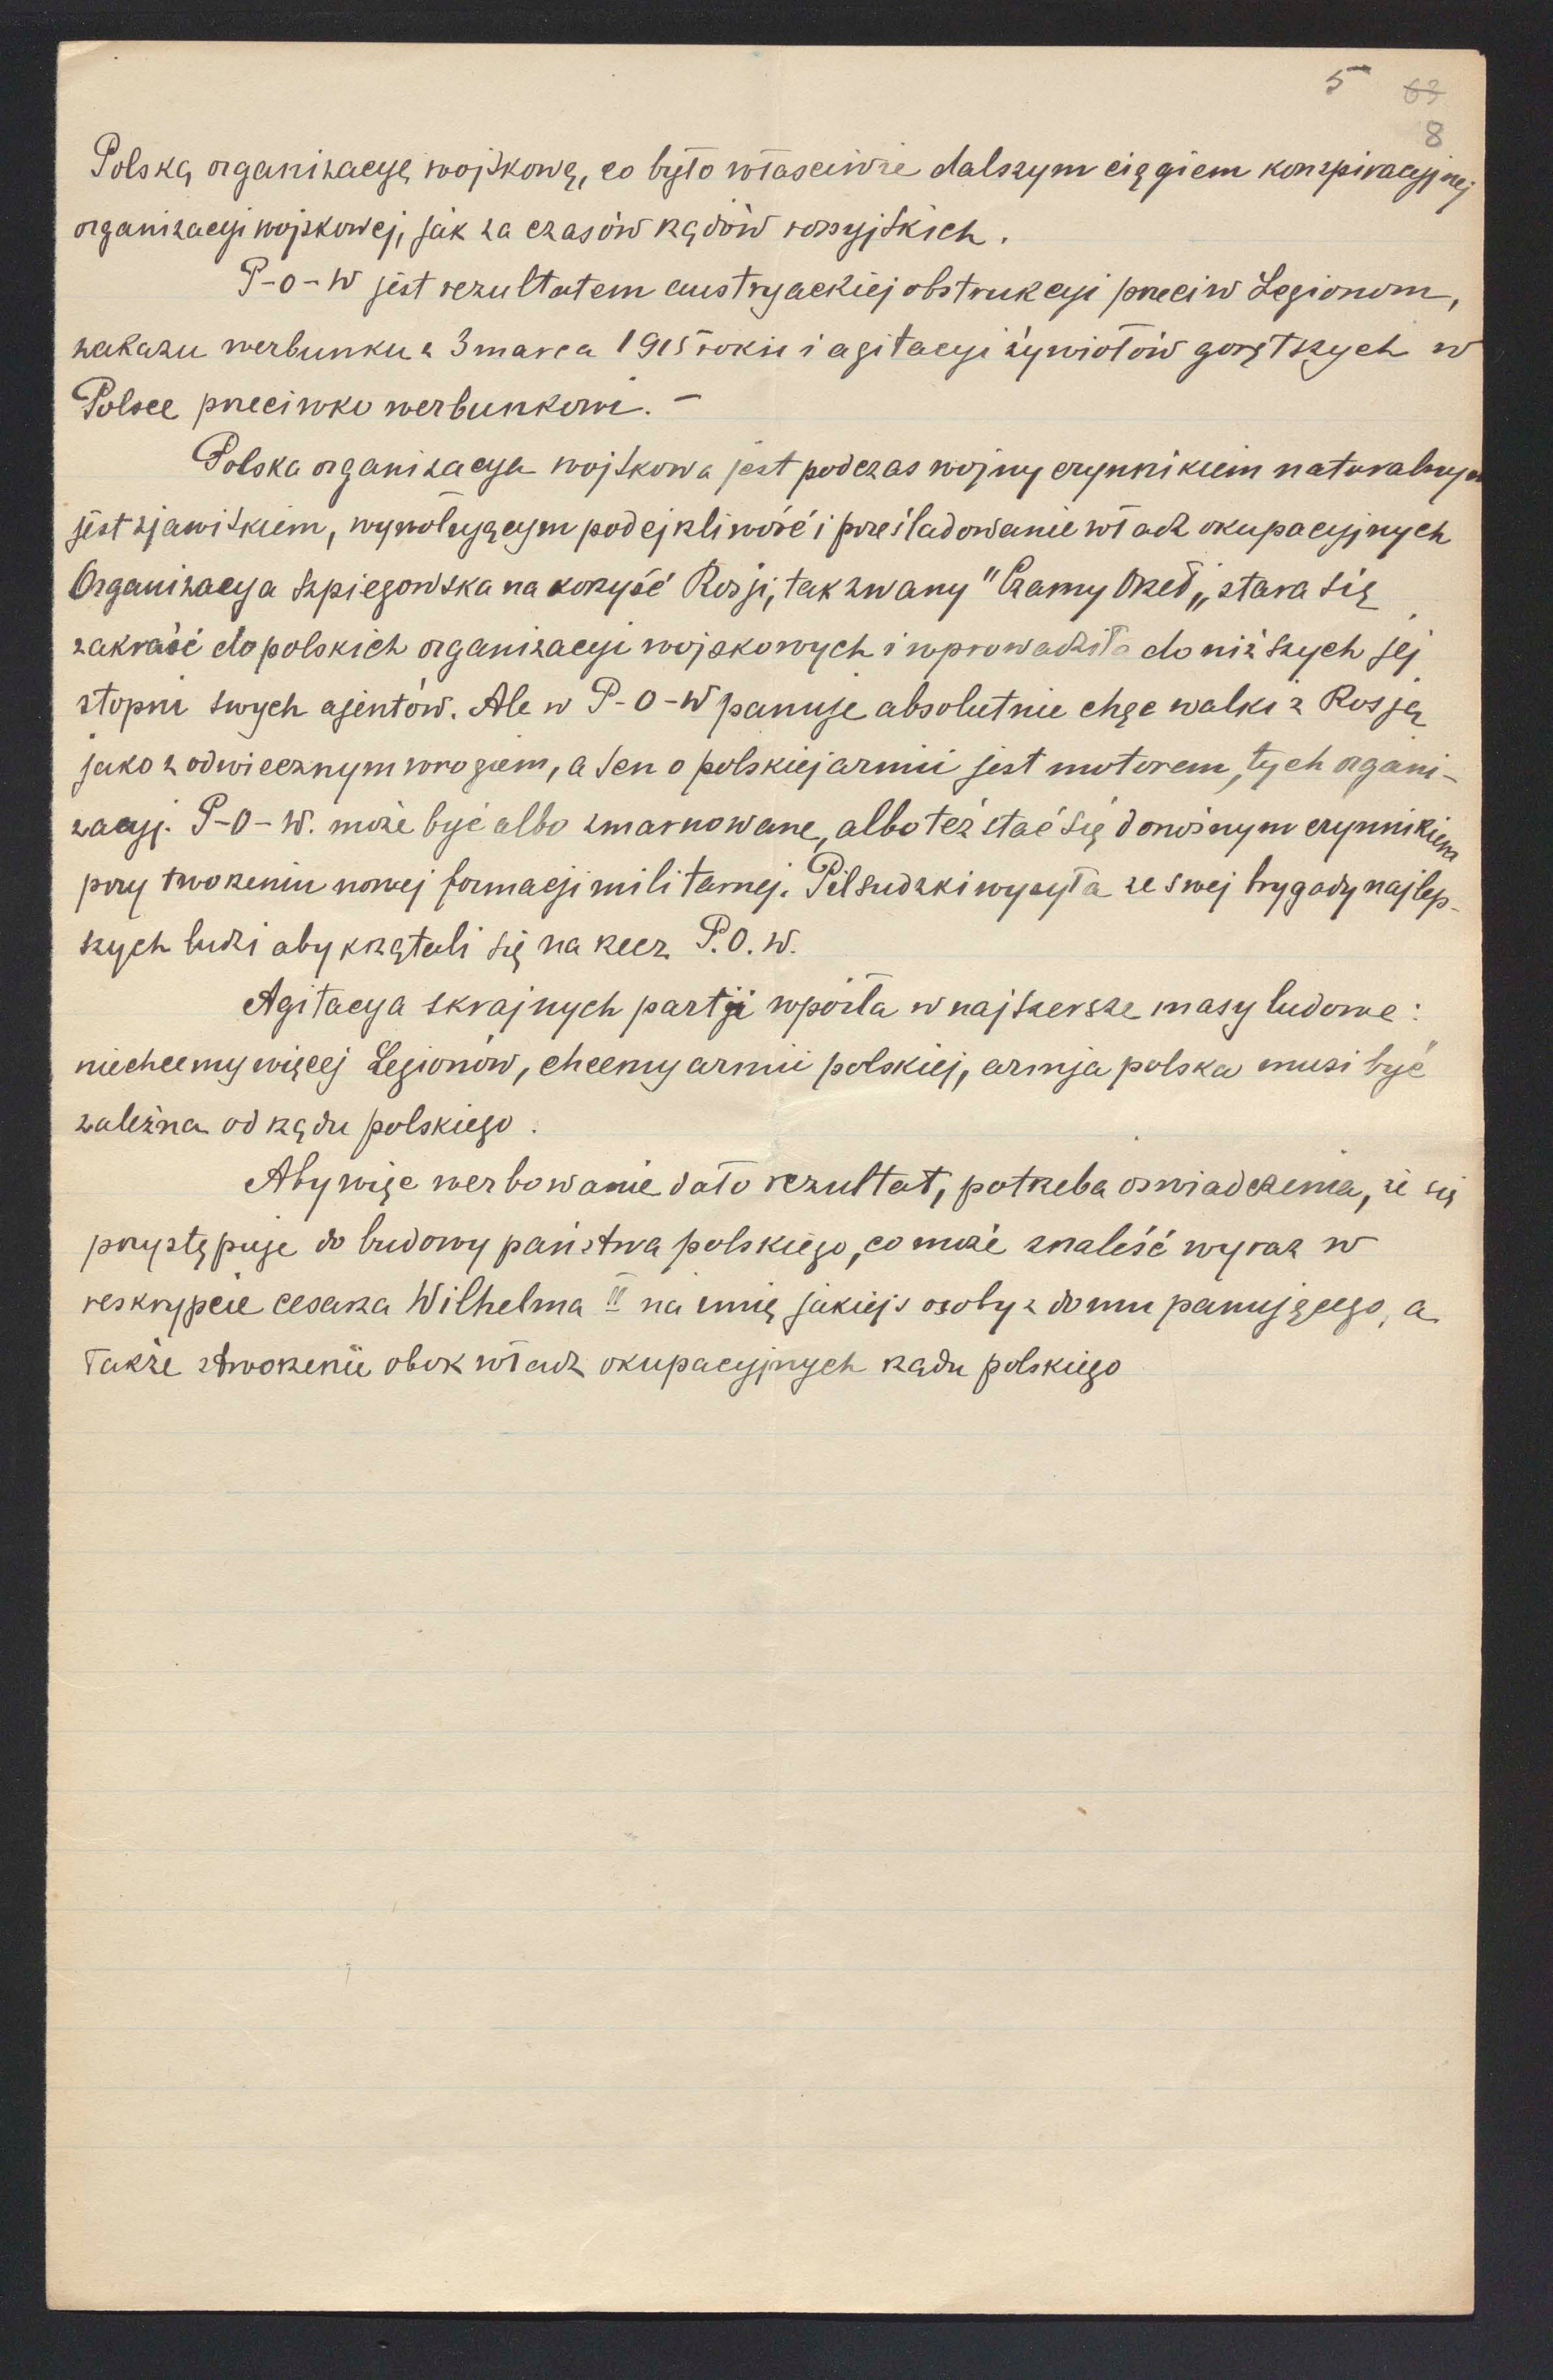 5 63
8
Polską organizacyę wojskową, co było właściwie dalszym ciągiem konspiracyjnej
organizacyi wojskowej, jak za czasów rządów rossyjskich.
P-O-W jest rezultatem austryackiej obstrukcyi przeciw Legionom,
zakazu werbunku z 3 marca 1915 roku i agitacyi żywiołów gorętszych w
Polsce przeciwko werbunkowi. –
Polska organizacya wojskowa jest podczas wojny czynnikiem naturalnym
jest zjawiskiem, wywołującym podejrzliwość i prześladowanie władz okupacyjnych
Organizacya szpiegowska na korzyść Rosji, tak zwany "Czarny Orzeł„ stara się
zakraść do polskich organizacyi wojskowych i wprowadziła do niższych jej
stopni swych ajentów. Ale w P-O-W panuje absolutnie chęc walki z Rosją
jako z odwiecznym wrogiem, a sen o polskiej armii jest motorem, tych organi-
zacyj. P-O-W. może być albo zmarnowane, albo też stać się donośnym czynnikiem
przy tworzeniu nowej formacji militarnej. Piłsudzki wysyła ze swej brygady najlep-
szych ludzi aby krzątali się na rzecz P.O.W.
Agitacya skrajnych partji wpoiła w najszersze masy ludowe:
niechcemy więcej Legionów, chcemy armii polskiej, armja polska musi być
zależna od rządu polskiego.
Aby więc werbowanie dało rezultat, potrzeba oswiadczenia, że się
przystępuje do budowy państwa polskiego, co może znaleść wyraz w
reskrypcie cesarza Wilhelma II na imię jakiejs osoby z domu panującego, a
także stworzenie obok władz okupacyjnych rządu polskiego